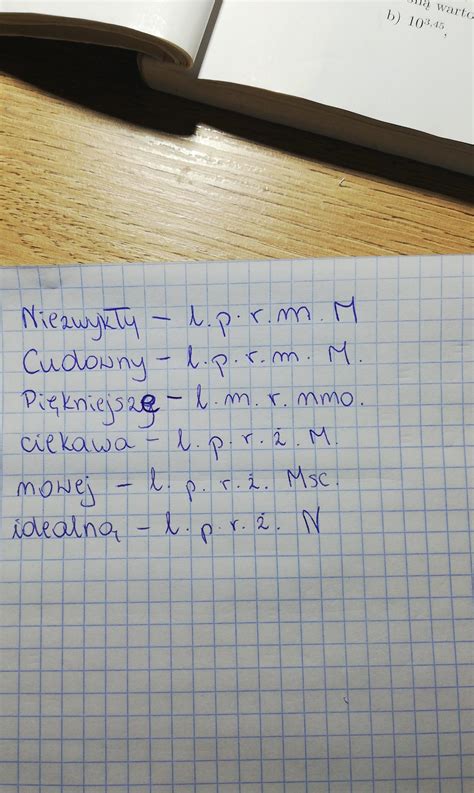 ną warto
b) 10^3,45,
Niezwykły – l.p.r.m. M
Cudowny – l.p.r.m. M.
Piękniejsze – l.m.r.nmo.
ciekawa – l.p.r.ż. M.
nowej – l.p.r.ż. Msc.
idealną – l.p.r.ż. N